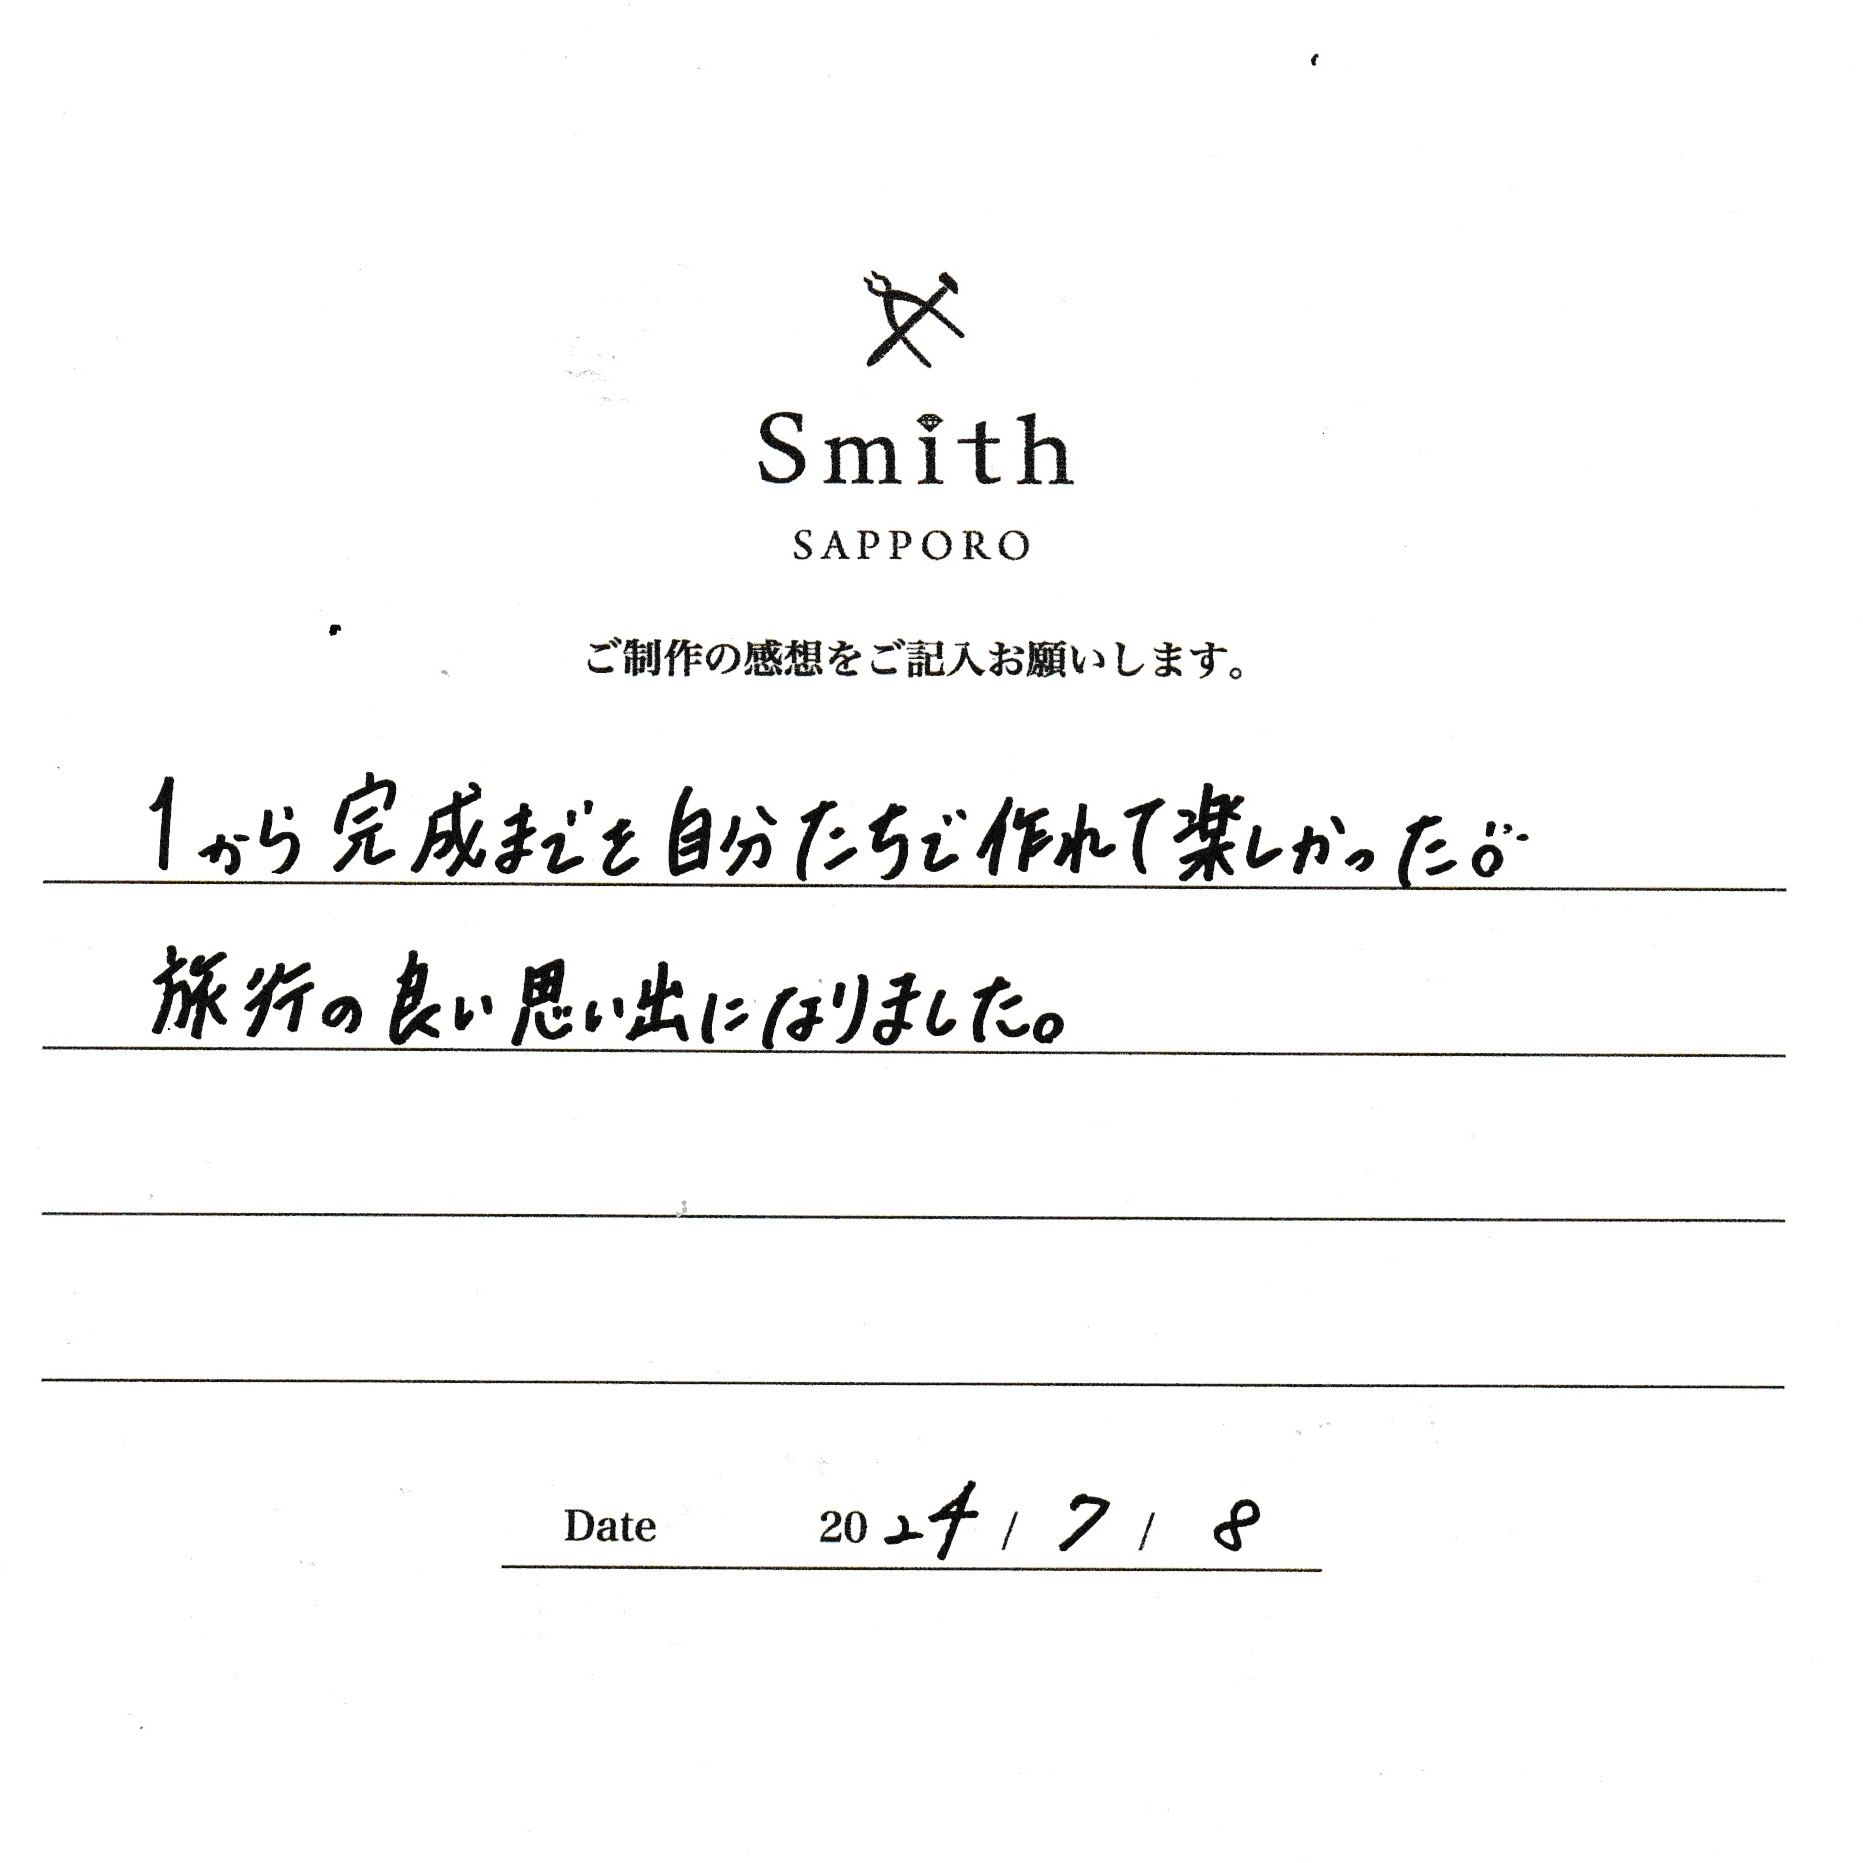 Smith
SAPPORO
ご制作の感想をご記入お願いします。
1から完成までを自分たちで作れて楽しかった。
旅行の良い思い出になりました。
Date 2024 / 7 / 8